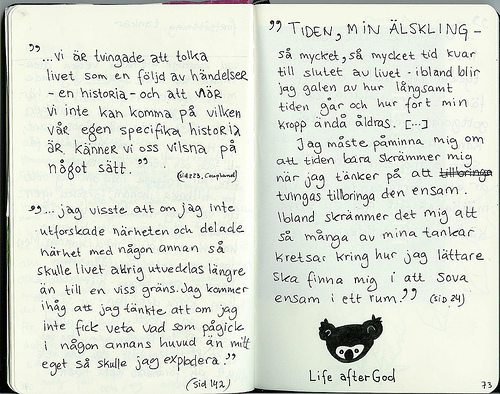 ”...vi är tvingade att tolka
livet som en följd av händelser
- en historia - och att NÄR
vi inte kan komma på vilken
vår egen specifika historia
är känner vi oss vilsna på
något sätt.”
(sid 223, Coupland)
”...jag visste att om jag inte
utforskade närheten och delade
närhet med någon annan så
skulle livet aldrig utvecklas längre
än till en viss gräns. Jag kommer
ihåg att jag tänkte att om jag
inte fick veta vad som pågick
i någon annans huvud än mitt
eget så skulle jag explodera.”
(sid 142)
”TIDEN, MIN ÄLSKLING -
så mycket, så mycket tid kvar
till slutet av livet - ibland blir
jag galen av hur långsamt
tiden går och hur fort min
kropp ändå åldras. [...]
Jag måste påminna mig om
att tiden bara skrämmer mig
när jag tänker på att tillbringa
tvingas tillbringa den ensam.
Ibland skrämmer det mig att
så många av mina tankar
kretsar kring hur jag lättare
ska finna mig i att sova
ensam i ett rum.” (sid 24)
Life after God
73